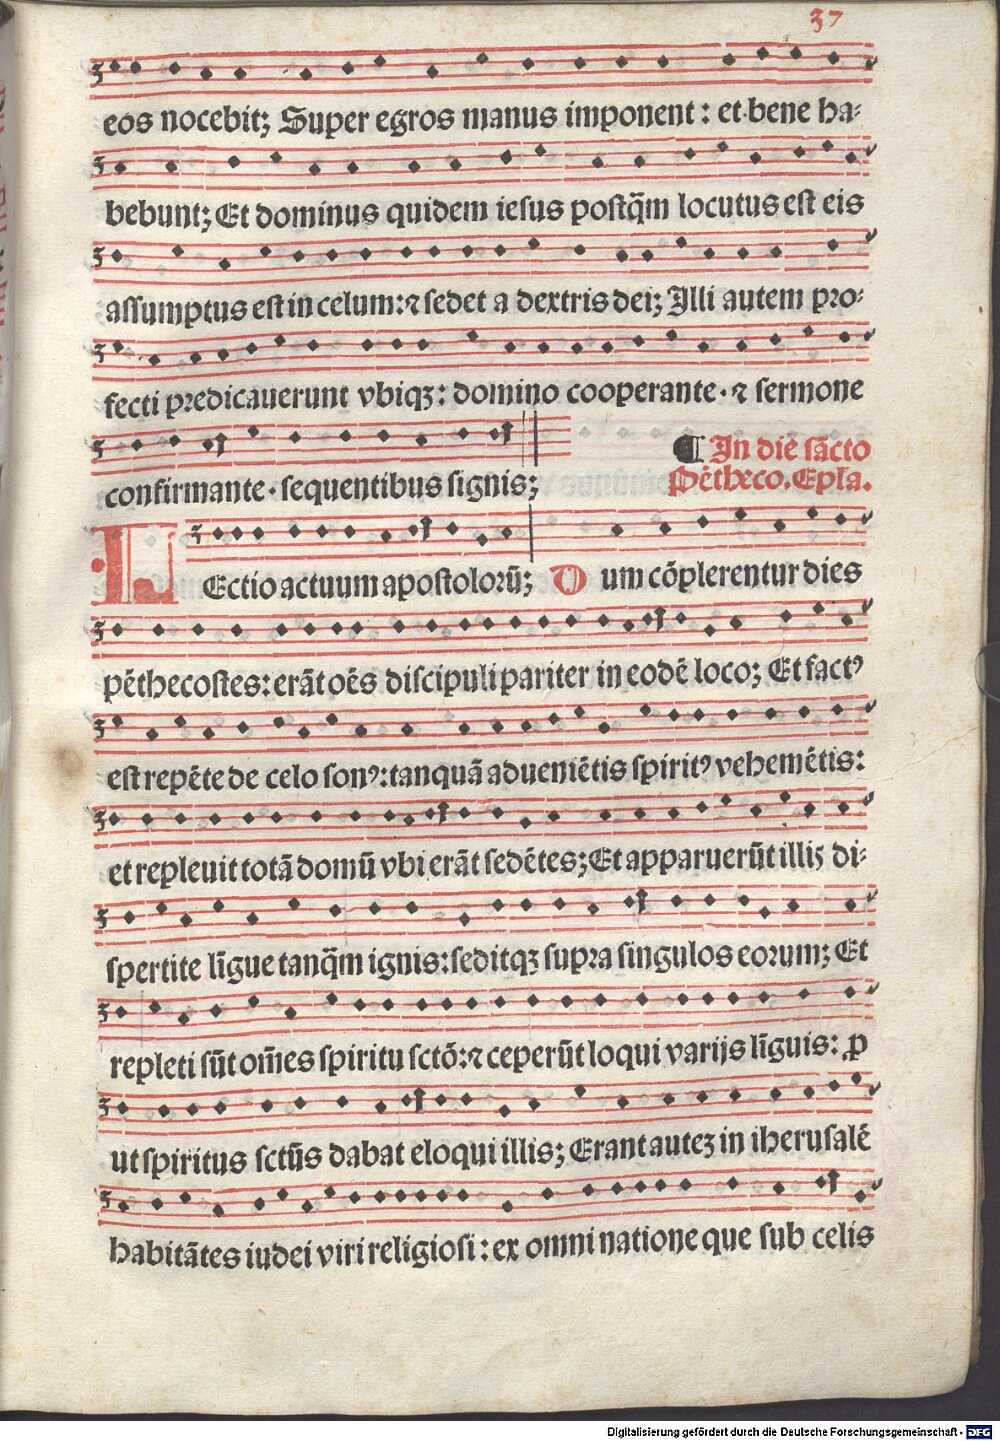 37
eos nocebit; Super egros manus imponent : et bene ha⸗
bebunt; Et dominus quidem iesus postq̃m locutus est eis
assumptus est in celum: ⁊ sedet a dextris dei; Illi autem pro⸗
fecti predicauerunt vbiqꝫ : domino cooperante · ⁊ sermone
confirmante · sequentibus signis;
¶ In die sācto
Pēthēco. Epla.
LEctio actuum apostolorū; Dum cōplerentur dies
pēthecostes: erāt oēs discipuli pariter in eodē loco; Et factꝰ
est repēte de celo sonꝰ: tanquā adueniētis spiritꝰ vehemētis:
et repleuit totā domū vbi erāt sedētes; Et apparuerūt illis di⸗
spertite līgue tanq̃m ignis: seditqꝫ supra singulos eorum; Et
repleti sūt om̄es spiritu sctō: ⁊ ceperūt loqui varijs līguis: ꝓ
ut spiritus sctūs dabat eloqui illis; Erant auteꝫ in iherusalē
habitātes iudei viri religiosi : ex omni natione que sub celis
Digitalisierung gefördert durch die Deutsche Forschungsgemeinschaft - DFG